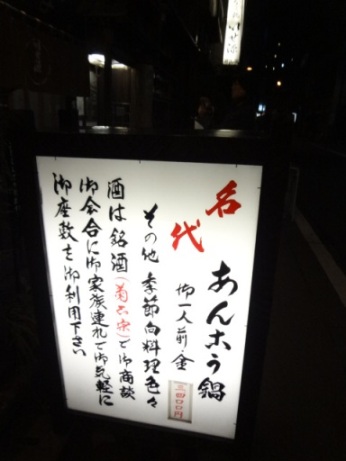 名代
あんこう鍋
御一人前金
三四〇〇円
その他 季節向料理色々
酒は銘酒(菊正宗)で御商談
御会合に御家族連れで御気軽に
御座敷を御利用下さい